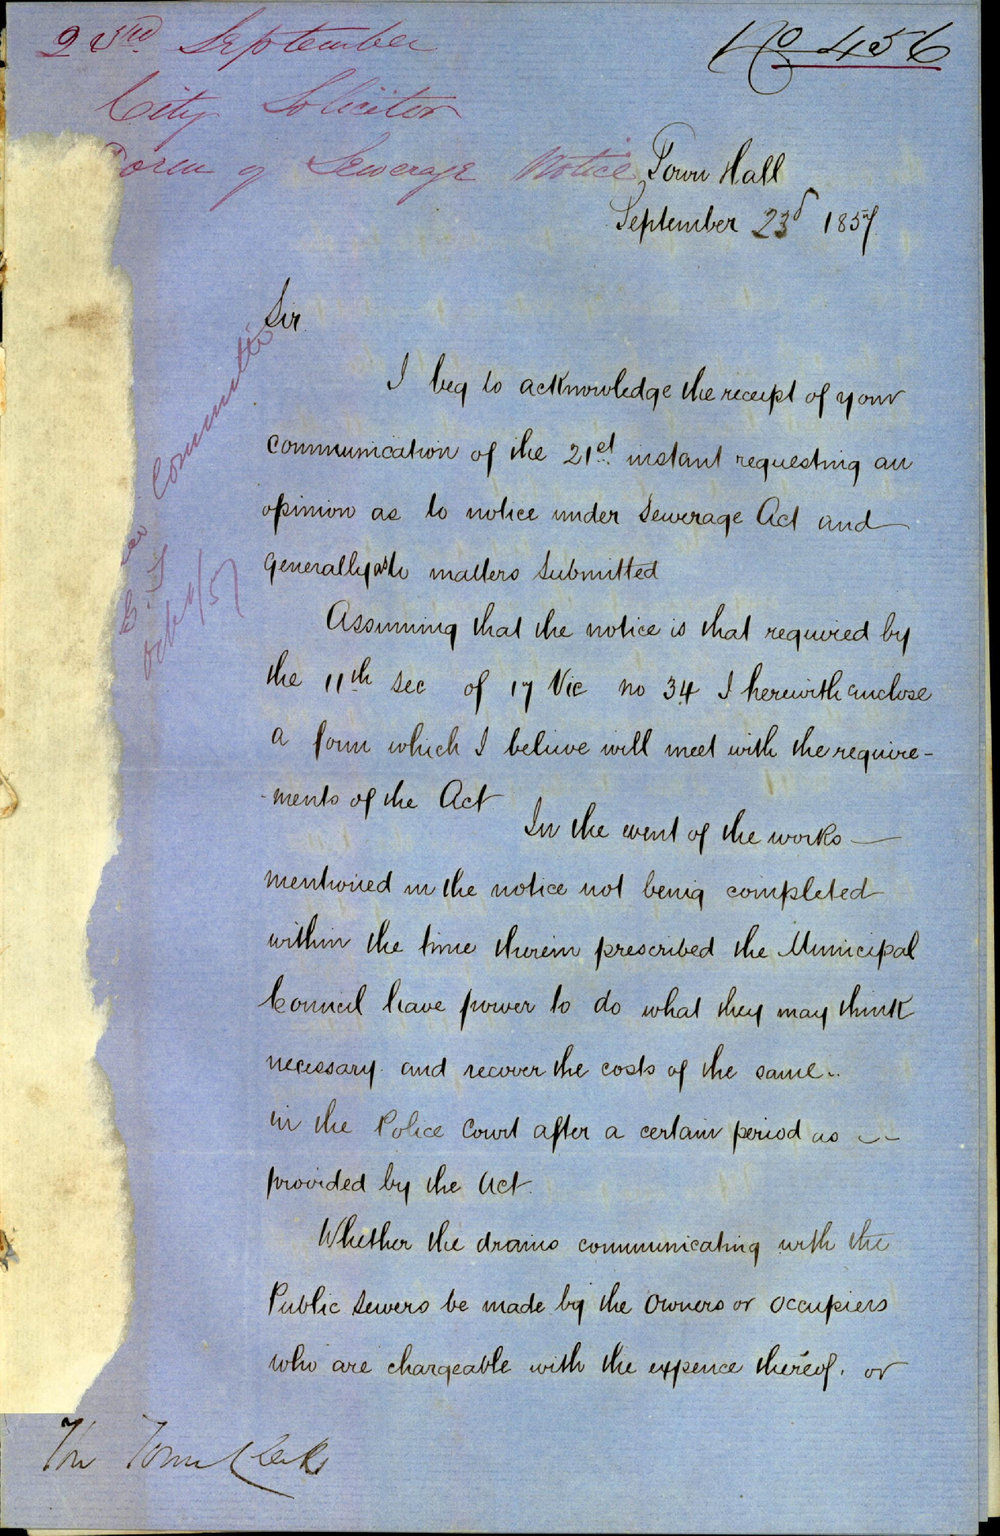 23rd September
No 456
City Solicitor
Form of Sewerage Notice
Town Hall
September 23d 1857
Sir
Committee
Oct 1/57
I beg to acknowledge the receipt of your
communication of the 21st instant requesting an
opinion as to notice under Sewerage Act and
generally as to matters submitted
Assuming that the notice is that required by
the 11th sec of 17 Vic no 34 I herewith enclose
a form which I believe will meet with the require-
-ments of the Act
In the event of the works
mentioned in the notice not being completed
within the time therein prescribed the Municipal
Council have power to do what they may think
necessary and recover the costs of the same
in the Police Court after a certain period as
provided by the Act.
Whether the drains communicating with the
Public Sewers be made by the Owners or Occupiers
who are chargeable with the expence thereof. or
The Town Clerk